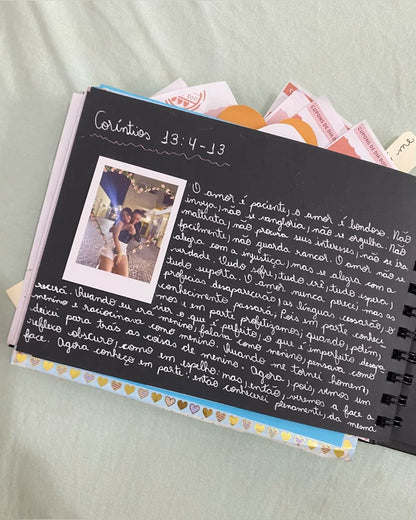 Coríntios 13:4-13
O amor é paciente, o amor é bondoso. Não
inveja, não se vangloria, não se orgulha. Não
maltrata, não procura seus interesses, não se ira
facilmente, não guarda rancor. O amor não
alegra com a injustiça, mas se alegra com a
verdade. Tudo sofre, tudo crê, tudo espera,
tudo suporta. O amor nunca perece; mas as
profecias desaparecerão, as línguas cessarão, o
conhecimento passará. Pois em parte conhece
mos e em parte profetizamos; quando, porém,
vier o que é perfeito, o que é imperfeito desapa
recerá. Quando eu era menino, falava como menino, pensava como
menino e raciocinava como menino. Quando me tornei homem,
deixei para trás as coisas de menino. Agora, pois, vemos um
reflexo obscuro, como em espelho; mas, então, veremos a face a
face. Agora conheço em parte; então conhecerei plenamente, da mesma
CUPONS DE DIA
CUPONS DE DIA
me